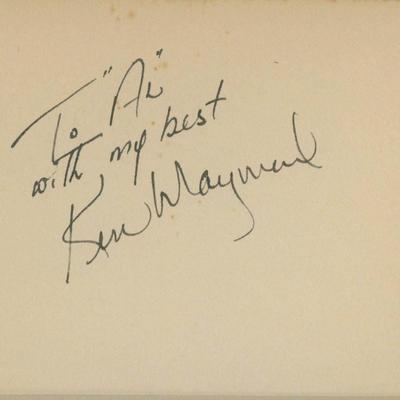 To "Al"
with my best
Ken Maynard